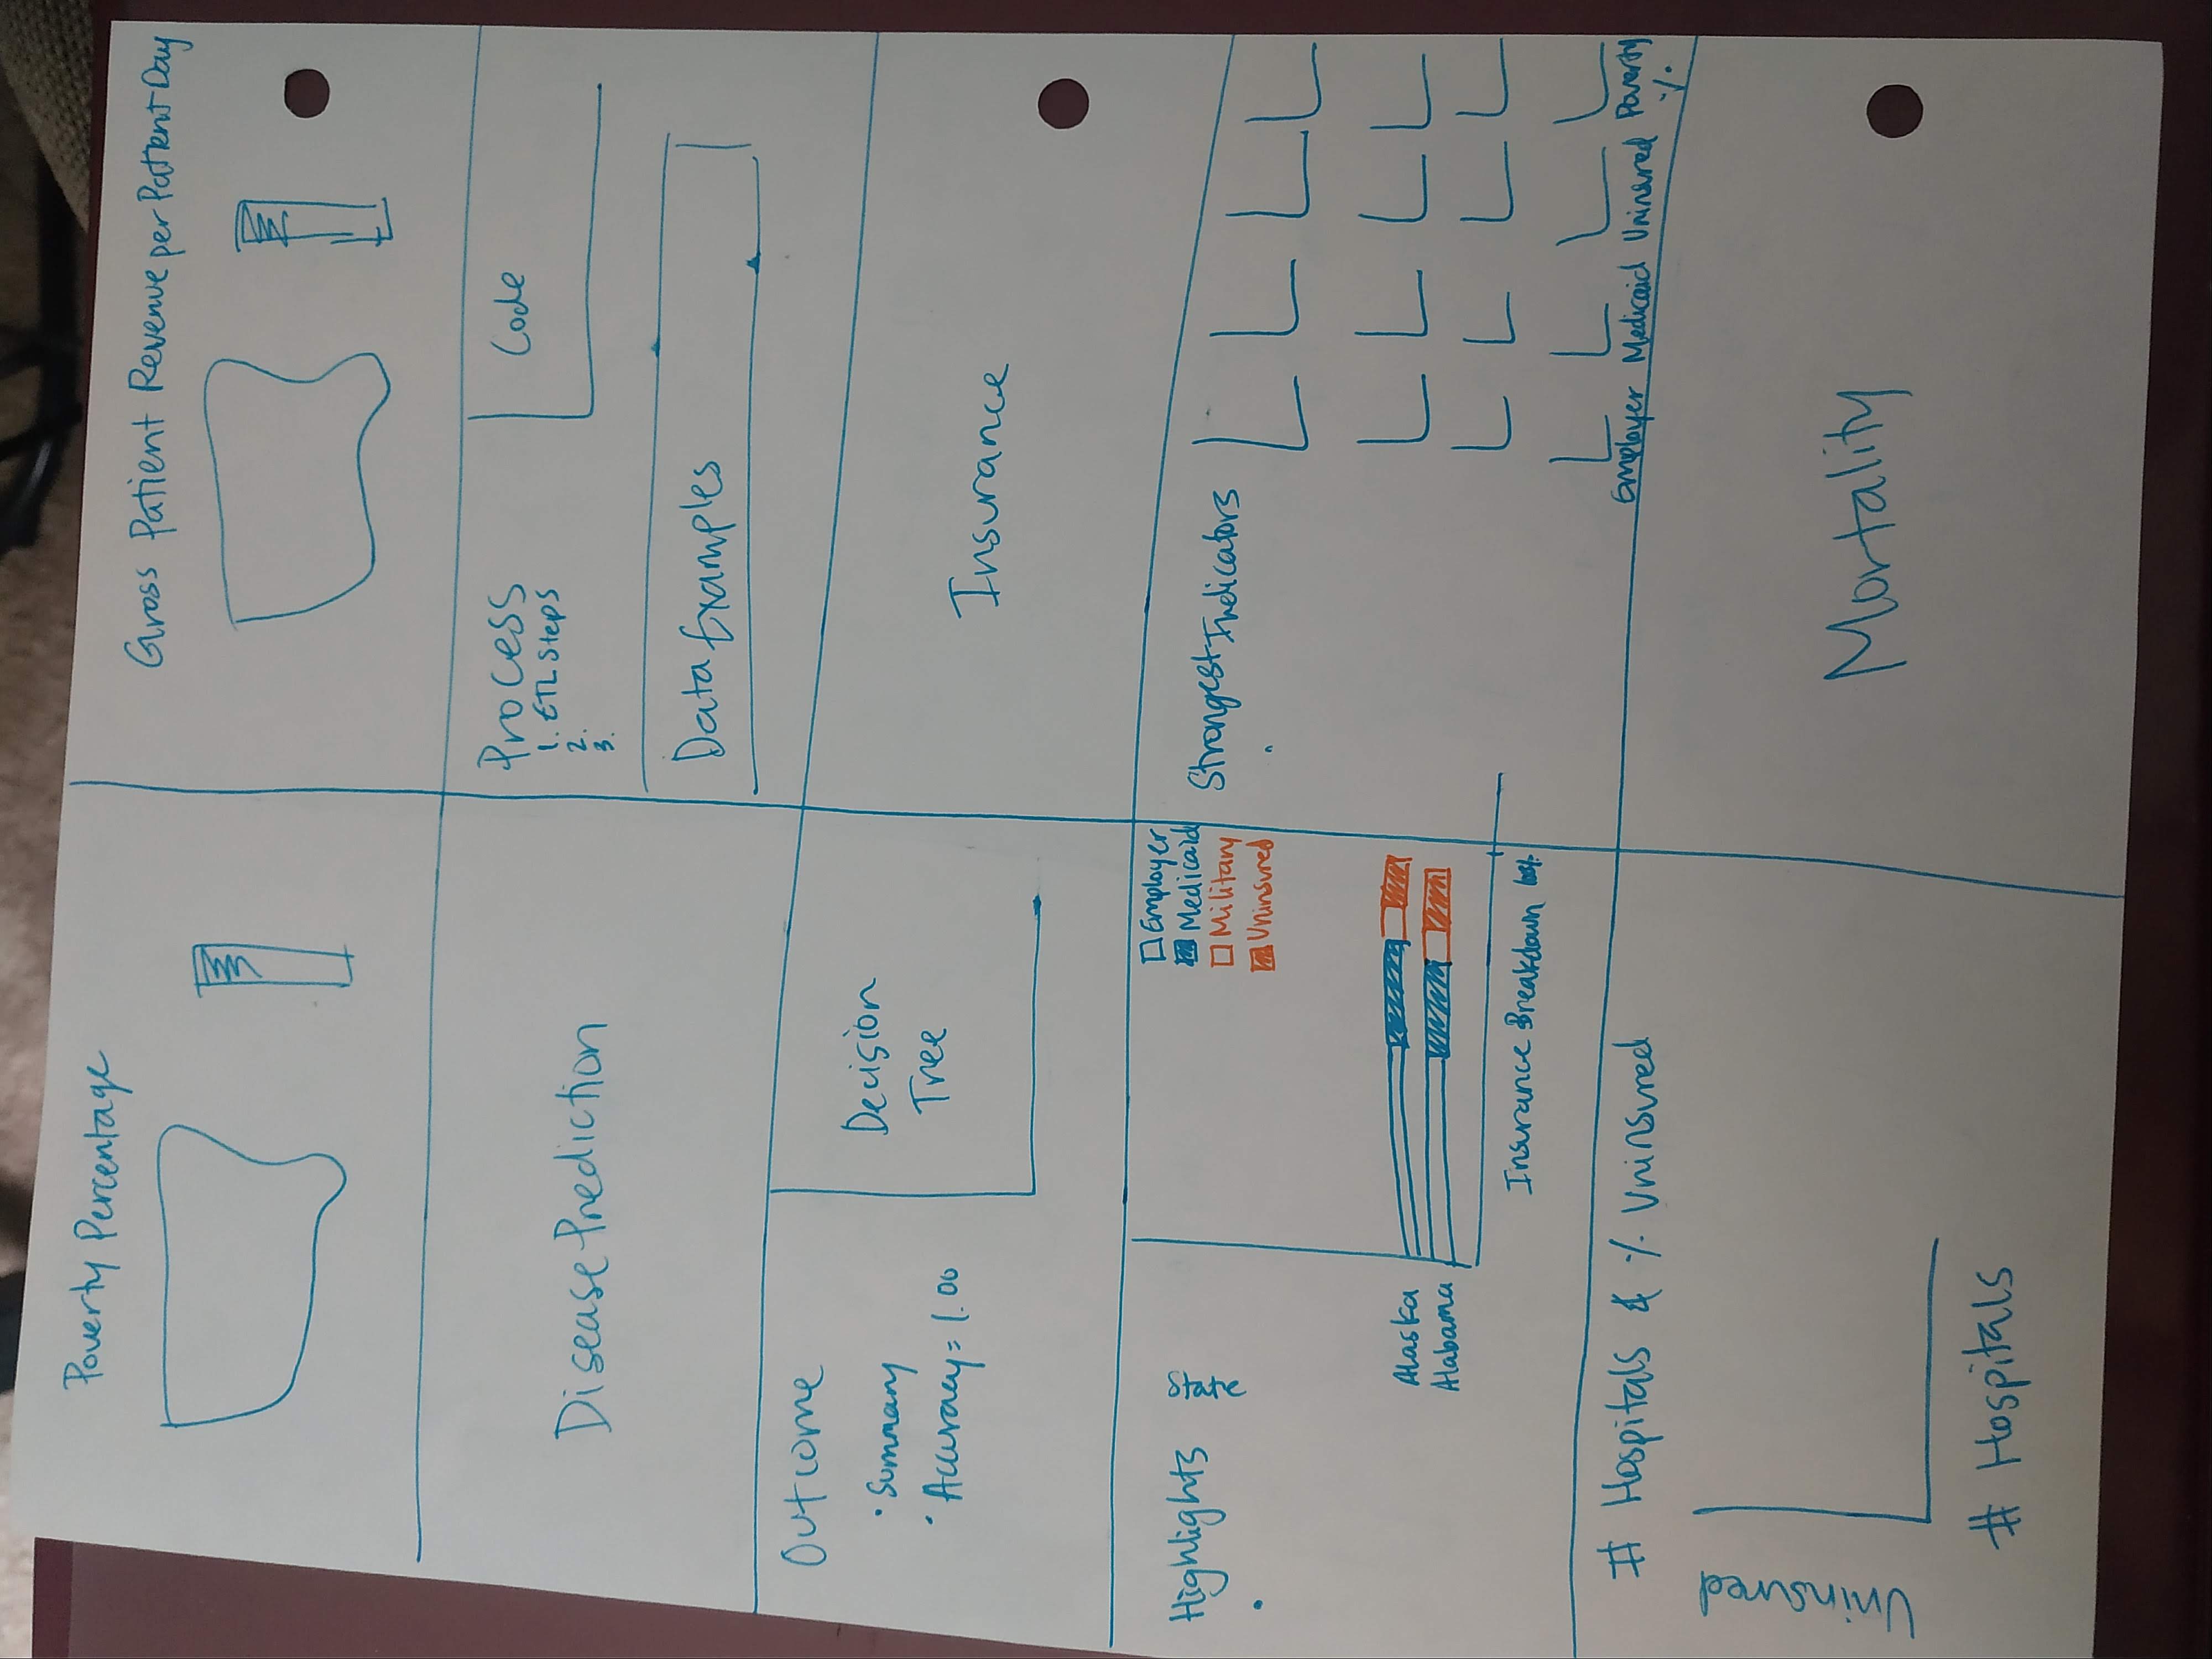 Poverty Percentage
Gross Patient Revenue per Patient Day
Disease Prediction
Process
1. ETL Steps
2.
3.
Code
Data Examples
Outcome
• Summary
• Accuracy = 1.00
Decision
Tree
Insurance
Highlights
•
State
Employer
Medicaid
Military
Uninsured
Alaska
Alabama
Insurance Breakdown 100%
Strongest Indicators
•
Employer Medicaid Uninsured Poverty
%
# Hospitals & % Uninsured
Uninsured
# Hospitals
Mortality